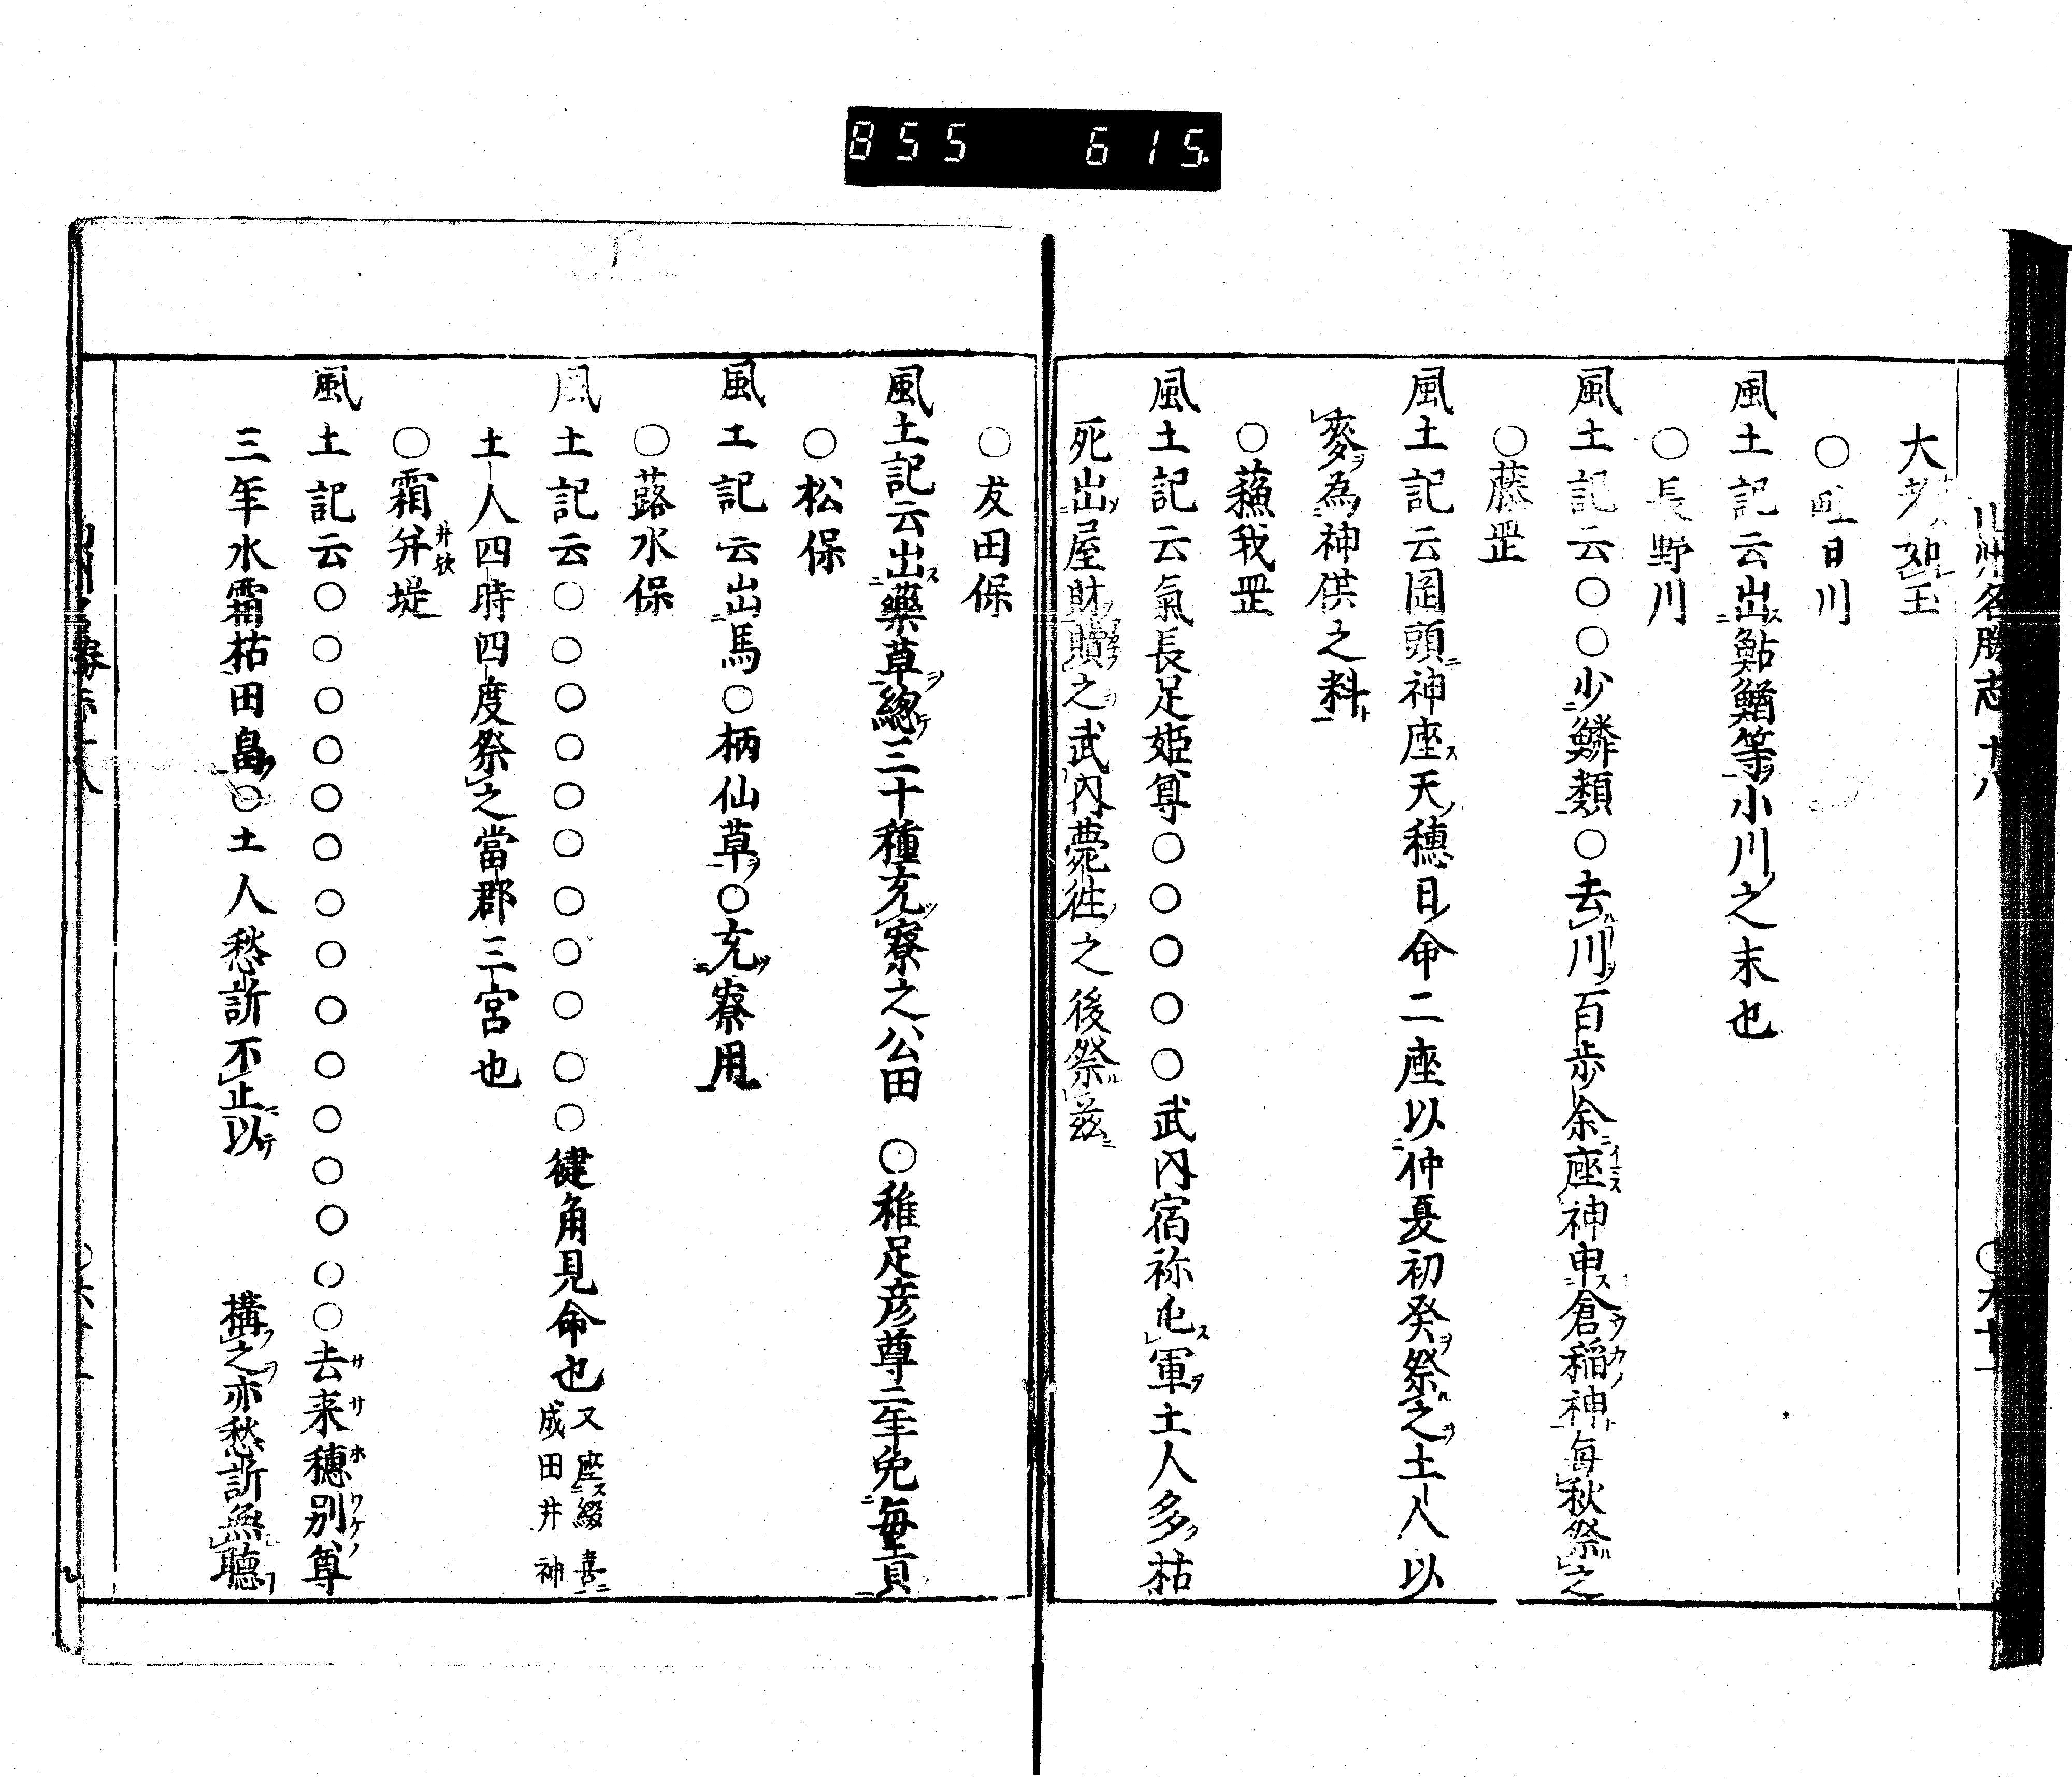 855 615
山州名勝志 十八
大如玉
○日川
風土記云出鮎鰌等小川之末也
○長野川
風土記云○○少鱗類○去川百歩余座神申倉稲神毎秋祭之
○藤罡
風土記云岡頭神座天穗日命二座以仲夏初癸祭之土人以
麥為神供之料
○蘓我罡
風土記云氣長足姫尊○○○○○武内宿祢屯軍土人多枯
死出屋財贖之武内薨徃之後祭兹
○友田保
風土記云出藥草緫三十種充寮之公田 ○稚足彦尊二年免毎貢
○松保
風土記云出馬○柄仙草○充寮用
○蕗水保
風土記云○○○○○○○○○○○健角見命也又座綴喜成田井神
土人四時四度祭之當郡三宮也
○霜弁堤
井欤
風土記云○○○○○○○○○○○○○○○去来穗別尊
サ サ ホ ワケノ
三年水霜枯田畠○土人愁訴不止以 構之亦愁訴無聴